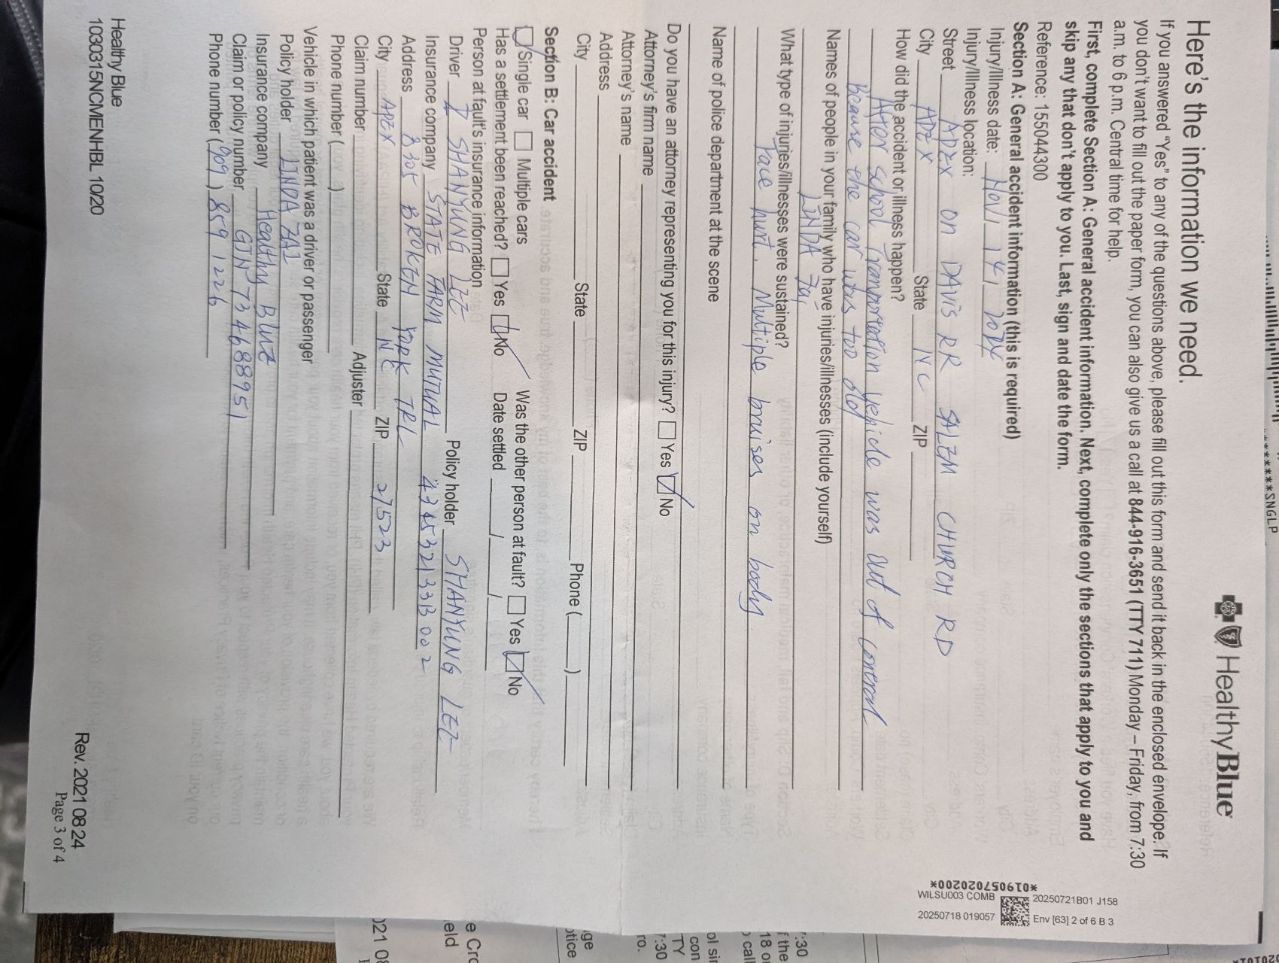 HealthyBlue
Here's the information we need.
If you answered "Yes" to any of the questions above, please fill out this form and send it back in the enclosed envelope. If
you don't want to fill out the paper form, you can also give us a call at 844-916-3651 (TTY 711) Monday – Friday, from 7:30
a.m. to 6 p.m. Central time for help.
First, complete Section A: General accident information. Next, complete only the sections that apply to you and
skip any that don't apply to you. Last, sign and date the form.
Reference: 155044300
Section A: General accident information (this is required)
Injury/Illness date: Nov / 14 / 2024
Injury/Illness location:
Street APEX ON DAVIS RR SALEM CHURCH RD
City APEX State NC ZIP
How did the accident or illness happen?
After school transportation vehicle was out of control
Because the car was too old
Names of people in your family who have injuries/illnesses (include yourself)
LINDA Zai
What type of injuries/illnesses were sustained?
Face hurt. Multiple bruises on body
Name of police department at the scene
Do you have an attorney representing you for this injury? Yes No
Attorney's firm name
Attorney's name
Address
City State ZIP Phone ( )
Section B: Car accident
Single car Multiple cars Was the other person at fault? Yes No
Has a settlement been reached? Yes No Date settled / /
Person at fault's insurance information
Driver SHANYUNG LEE Policy holder SHANYUNG LEE
Insurance company STATE FARM MUTUAL
Address BROKEN YORK TRL
City APEX State NC ZIP 27523
Claim number Adjuster
Phone number ( )
Vehicle in which patient was a driver or passenger
Policy holder LINDA ZAI
Insurance company Healthy BLUE
Claim or policy number
Phone number (909) 859 1226
Healthy Blue
1030315NCMENHBL 10/20
Rev. 2021 08 24
Page 3 of 4
*******SNGLP
*019057020200*
WILSU003 COMB
20250718 019057
20250721B01 J158
Env [63] 2 of 6 B 3